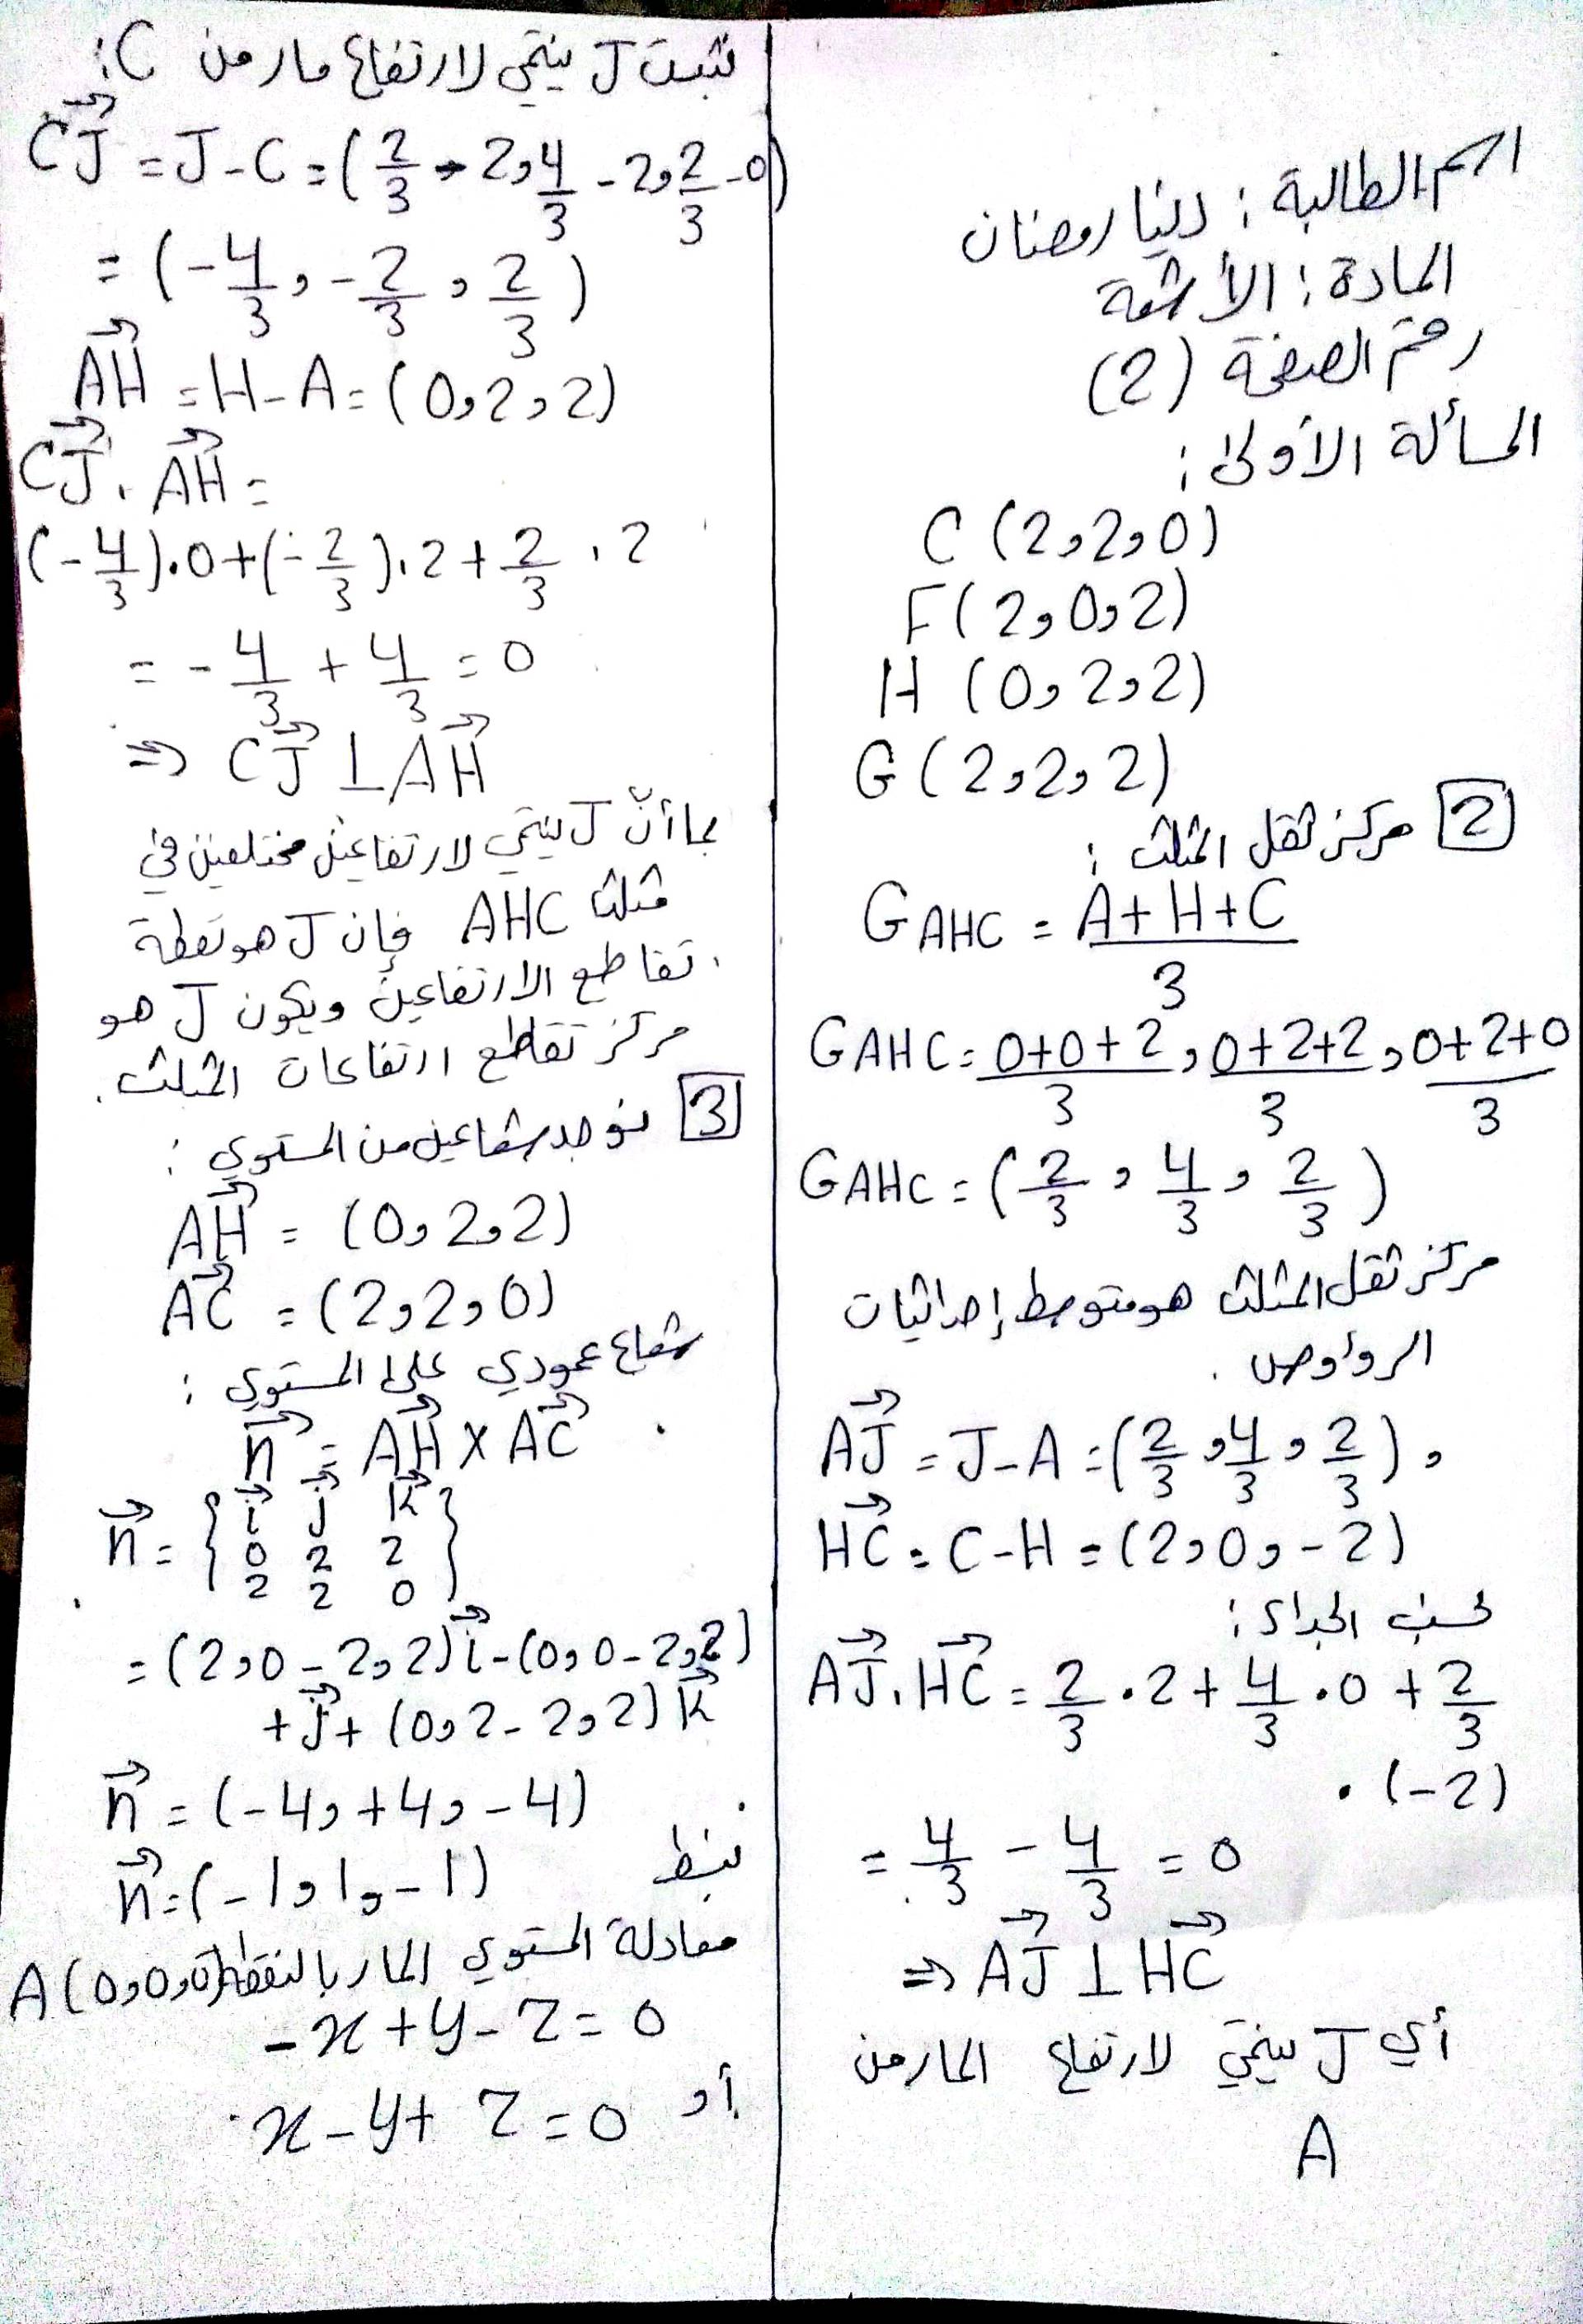 اسم الطالبة : دلنيا رمضان
المادة : الأشعة
رقم الصفحة (2)
المسألة الأولى :
C (2,2,0)
F(2,0,2)
H (0,2,2)
G(2,2,2)
[2] مركز ثقل المثلث :
G AHC = A+H+C / 3
GAHC = 0+0+2 / 3 , 0+2+2 / 3 , 0+2+0 / 3
GAHC = (2/3 , 4/3 , 2/3)
مركز ثقل المثلث هو متوسط إحداثيات
الرؤوس .
AJ⃗ = J-A = (2/3 , 4/3 , 2/3) ,
HC⃗ = C-H = (2,0,-2)
نحسب الجداء :
AJ⃗ . HC⃗ = 2/3 . 2 + 4/3 . 0 + 2/3
. (-2)
= 4/3 - 4/3 = 0
⇒ AJ⃗ ⊥ HC⃗
أي J ينتمي لارتفاع المار من
A
نثبت J ينتمي لارتفاع مار من C :
CJ⃗ = J-C = (2/3 - 2, 4/3 - 2, 2/3 - 0)
= (-4/3 , -2/3 , 2/3)
AH⃗ = H-A = (0,2,2)
CJ⃗ . AH⃗ =
(-4/3).0+(-2/3).2+2/3 . 2
= -4/3 + 4/3 = 0
⇒ CJ⃗ ⊥ AH⃗
بما أنّ J ينتمي لارتفاعين مختلفين في
مثلث AHC فإن J هو نقطة
تقاطع الارتفاعين ويكون J هو
مركز تقاطع ارتفاعات المثلث .
[3] نوجد شعاعين من المستوي :
AH⃗ = (0,2,2)
AC⃗ = (2,2,0)
شعاع عمودي على المستوي :
n⃗ = AH⃗ X AC⃗
n⃗ = { i⃗ j⃗ k⃗
0 2 2
2 2 0 }
= (2,0-2,2)i⃗-(0,0-2,2)
+j⃗+(0,2-2,2)k⃗
n⃗ = (-4,+4,-4)
نبسط n⃗=(-1,1,-1)
معادلة المستوي المار بالنقطة A(0,0,0)
-x+y-z=0
أو x-y+z=0